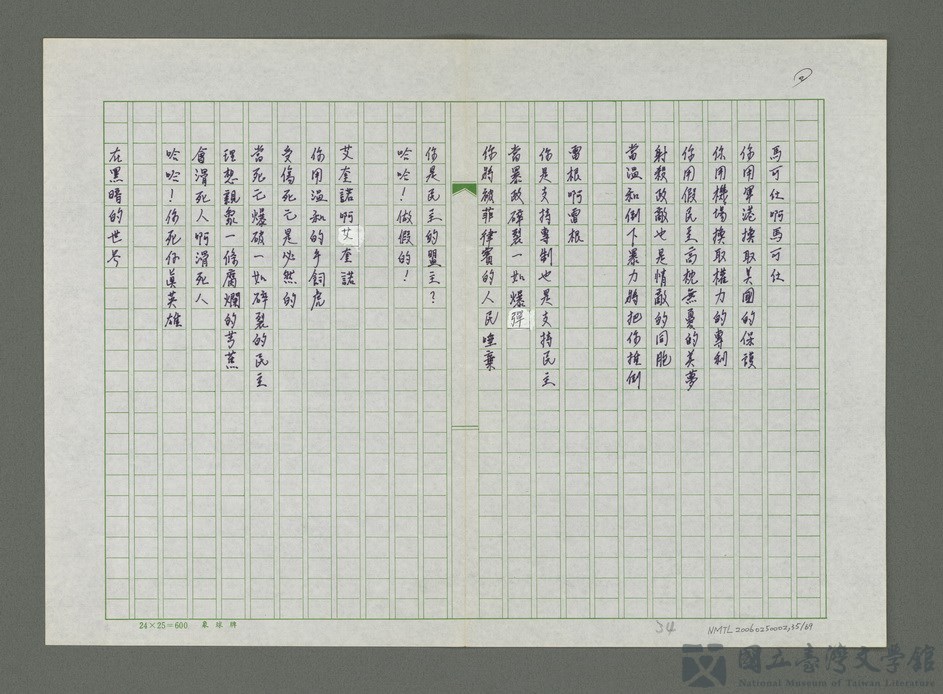 ②
馬可仕啊馬可仕
你用軍港換取美國的保護
你用機場換取權力的專利
你用假民主高枕無憂的美夢
射殺政敵也是情敵的同胞
當溫和倒下暴力將把你推倒
雷根啊雷根
你是支持專制也是支持民主
當暴政碎裂一如爆彈
你將被菲律賓的人民唾棄
你是民主的盟主？
哈哈！做假的！
艾奎諾啊艾奎諾
你用溫和的手飼虎
受傷死亡是必然的
當死亡爆破一如碎裂的民主
理想親象一條腐爛的芎蕉
會滑死人啊滑死人
哈哈！你死作真英雄
在黑暗的世界
24×25=600
34
NMTL20060250002,35/69
國立臺灣文學館
National Museum of Taiwan Literature